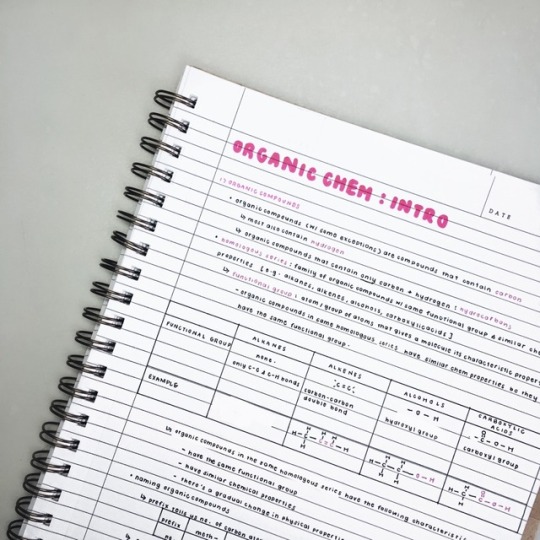 ORGANIC CHEM : INTRO
DATE
1) ORGANIC COMPOUNDS
• organic compounds (w/ some exceptions) are compounds that contain carbon
↳ most also contain hydrogen
↳ organic compounds that contain only carbon + hydrogen : hydrocarbons
• homologous series : family of organic compounds w/ same functional group & similar che
properties [e.g. alkanes, alkenes, alcohols, carboxylic acids]
↳ functional group : atom/group of atoms that gives a molecule its characteristic propert
- organic compounds in same homologous series have similar chem properties bc they
have the same functional group.
ALKANES
ALKENES
ALCOHOLS
CARBOXYLIC ACIDS
FUNCTIONAL GROUP
none.
only C-C & C-H bonds
C=C
carbon-carbon
double bond
-O-H
hydroxyl group
carboxyl group
EXAMPLE
↳ organic compounds in the same homologous series have the following characteristi
- have the same functional group
- have similar chemical properties
- there's a gradual change in physical propertie
• naming organic compounds
↳ prefix tells us no. of carbon ato
prefix
meth-